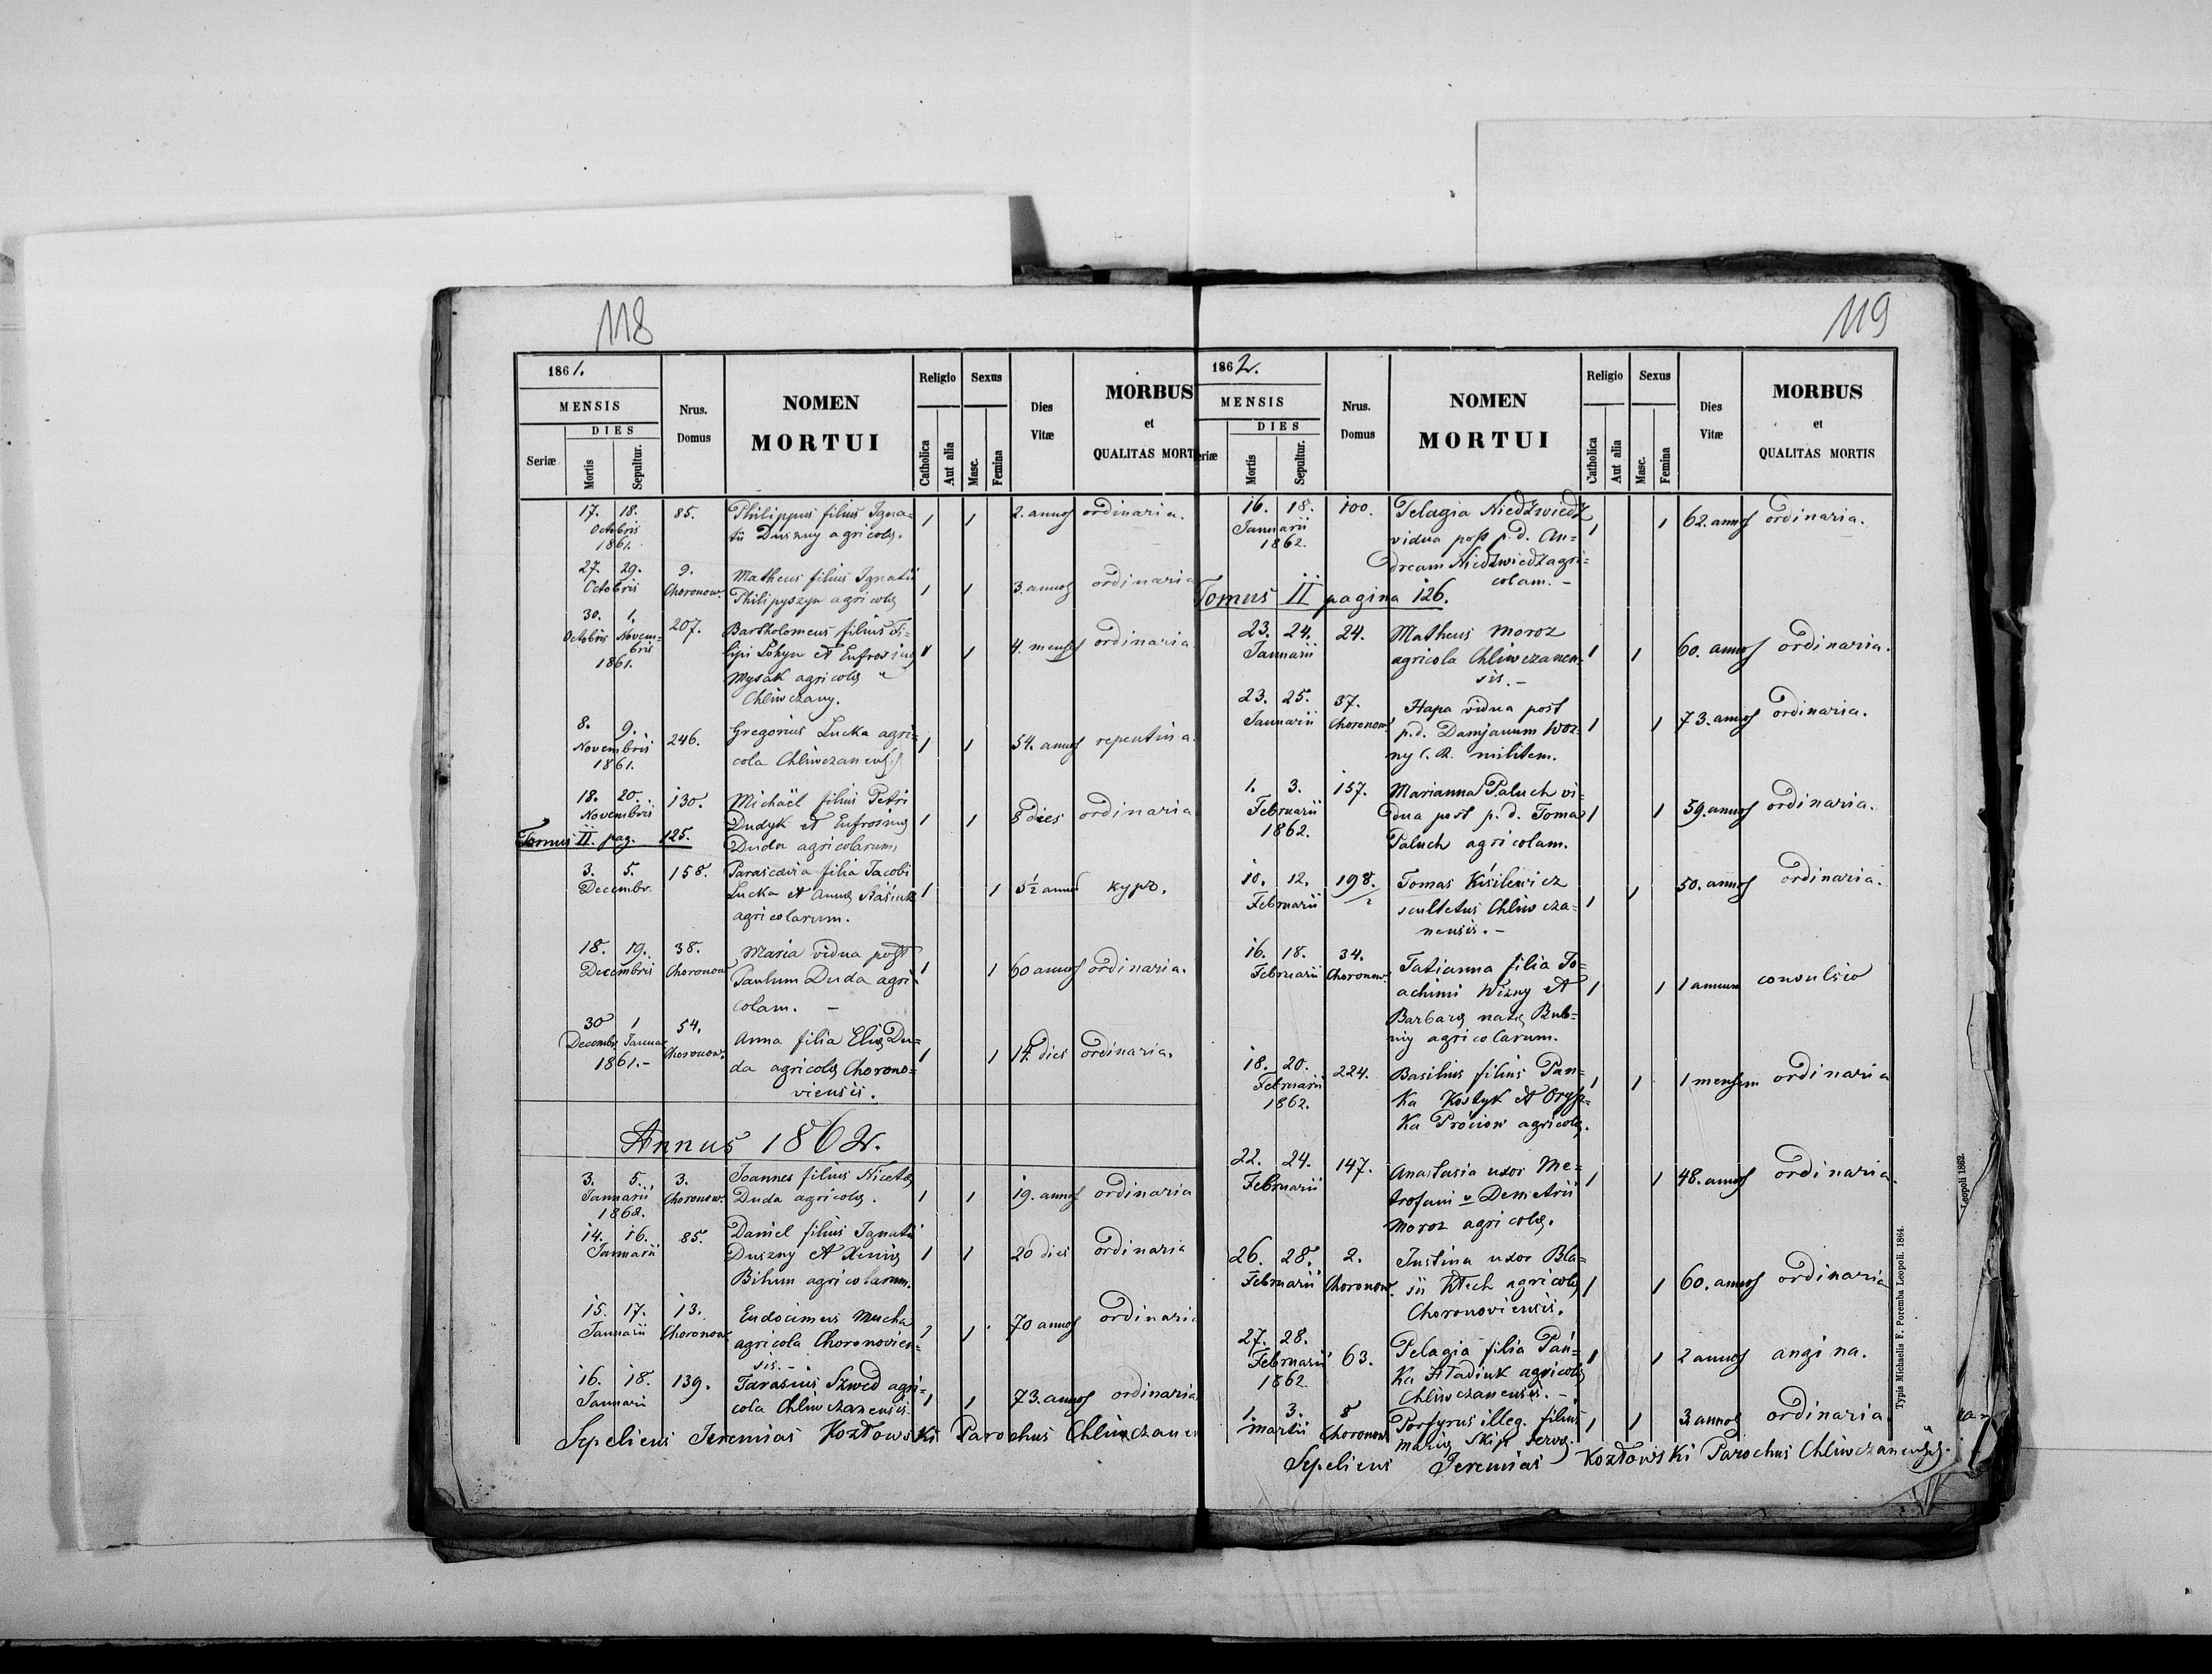 118
1861.
MENSIS
DIES
Seriæ
Mortis
Sepultur.
Nrus.
Domus
NOMEN
MORTUI
Religio
Catholica
Aut alia
Sexus
Masc.
Femina
Dies
Vitæ
MORBUS
et
QUALITAS MORT
17. 18. 85. Philippus filius Igna= 1 1 2. annos ordinaria.
Octobris tii Duszny agricolæ.
1861.
27. 29. 9. Matheus filius Ignatii 1 1 3. annos ordinaria
Octobris Choronow. Philipyszyn agricolæ
30. 1. 207. Bartholomeus filius Fi= 1 1 4. menses ordinaria.
Octobris Novem= lipi Łohyn et Eufrosinæ
bris
1861. Mysak agricolæ
Chliwczany.
8. 9. 246. Gregorius Lucka agri= 1 1 54. annos repentina.
Novembris cola Chliwczanensis
1861.
18. 20. 130. Michaël filius Petri 1 1 8 dies ordinaria
Novembris Dudyk et Eufrosinæ
Tomus II. pag. 125. Duda agricolarum,
3. 5. 158. Parascevia filia Jacobi 1 1 3½ annos kypr.
Decembr. Lucka et Annæ
agricolarum.
18. 19. 38. Maria vidua post 1 1 60 annos ordinaria.
Decembris Choronow Paulum Duda agri=
colam. –
30 1 54. Anna filia Eliæ Du= 1 1 14. dies ordinaria.
Decembr. Januar Choronow. da agricolæ Chorono=
1861.– viensis.
Annus 1862.
3. 5. 3. Joannes filius Nicetæ 1 1 19. annos ordinaria
Januarii Choronow. Duda agricolæ.
1862.
14. 16. 85. Daniel filius Ignatii 1 1 20 dies ordinaria
Januarii Duszny et Xeniæ
Bihun agricolarum.
15. 17. 13. Eudocimus Mucha 1 1 70 annos ordinaria
Januarii Choronow. agricola Choronovien=
sis. –
16. 18. 139. Tarasius Szwed agri= 1 1 73. annos ordinaria
Januari cola Chliwczanensis.
Sepeliens Jeremias Kozłowski Parochus Chliwczanen
119
1862.
MENSIS
DIES
eriæ
Mortis
Sepultur.
Nrus.
Domus
NOMEN
MORTUI
Religio
Catholica
Aut alia
Sexus
Masc.
Femina
Dies
Vitæ
MORBUS
et
QUALITAS MORTIS
16. 18. 100. Pelagia Niedzwiedz 1 1 62. annos ordinaria.
Januarii vidua post p. d. An=
1862. dream Niedzwiedz agri=
colam. –
Tomus II pagina 126.
23. 24. 24. Matheus Moroz 1 1 60. annos ordinaria.
Januarii agricola Chliwczanen=
sis. –
23. 25. 37. Hapa vidua post 1 1 73. annos ordinaria.
Januarii Choronow. p. d. Damjanum Woz=
ny C. R. militem.
1. 3. 157. Marianna Paluch vi= 1 1 59. annos ordinaria.
Februarii dua post p. d. Toma
1862. Paluch agricolam.
10. 12. 198. Tomas Kisilewicz 1 1 50. annos ordinaria.
Februarii /2 scultetus Chliwcza=
nensis. –
16. 18. 34. Tatianna filia Jo= 1 1 1 annum convulsio
Februarii Choronow. achimi Wizny et
Barbaræ natæ Bub=
niy agricolarum.
18. 20. 224. Basilius filius Pan= 1 1 1 mensem ordinaria
Februarii ka Kostyk et Orysz=
1862. ka Prociow agricolæ.
22. 24. 147. Anastasia uxor Me= 1 1 48. annos ordinaria.
Februarii trofani v Demetrii
Moroz agricolæ.
26. 28. 2. Justina uxor Bla= 1 1 60. annos ordinaria
Februarii Choronow. sii Ktech agricolæ
Choronoviensis.
27. 28. 63. Pelagia filia Pan= 1 1 2 annos angina.
Februarii ka Hladiuk agricolæ
1862. Chliwczanensis. –
1. 3. 8 Porfyrus illeg. filius 1 1 3 annos ordinaria.
Martii Choronow Mariæ Skip servæ.
Sepeliens Jeremias Kozłowski Parochus Chliwczanensis.
Typis Michaelis F. Poremba Leopoli. 1864.
Leopoli 1862.